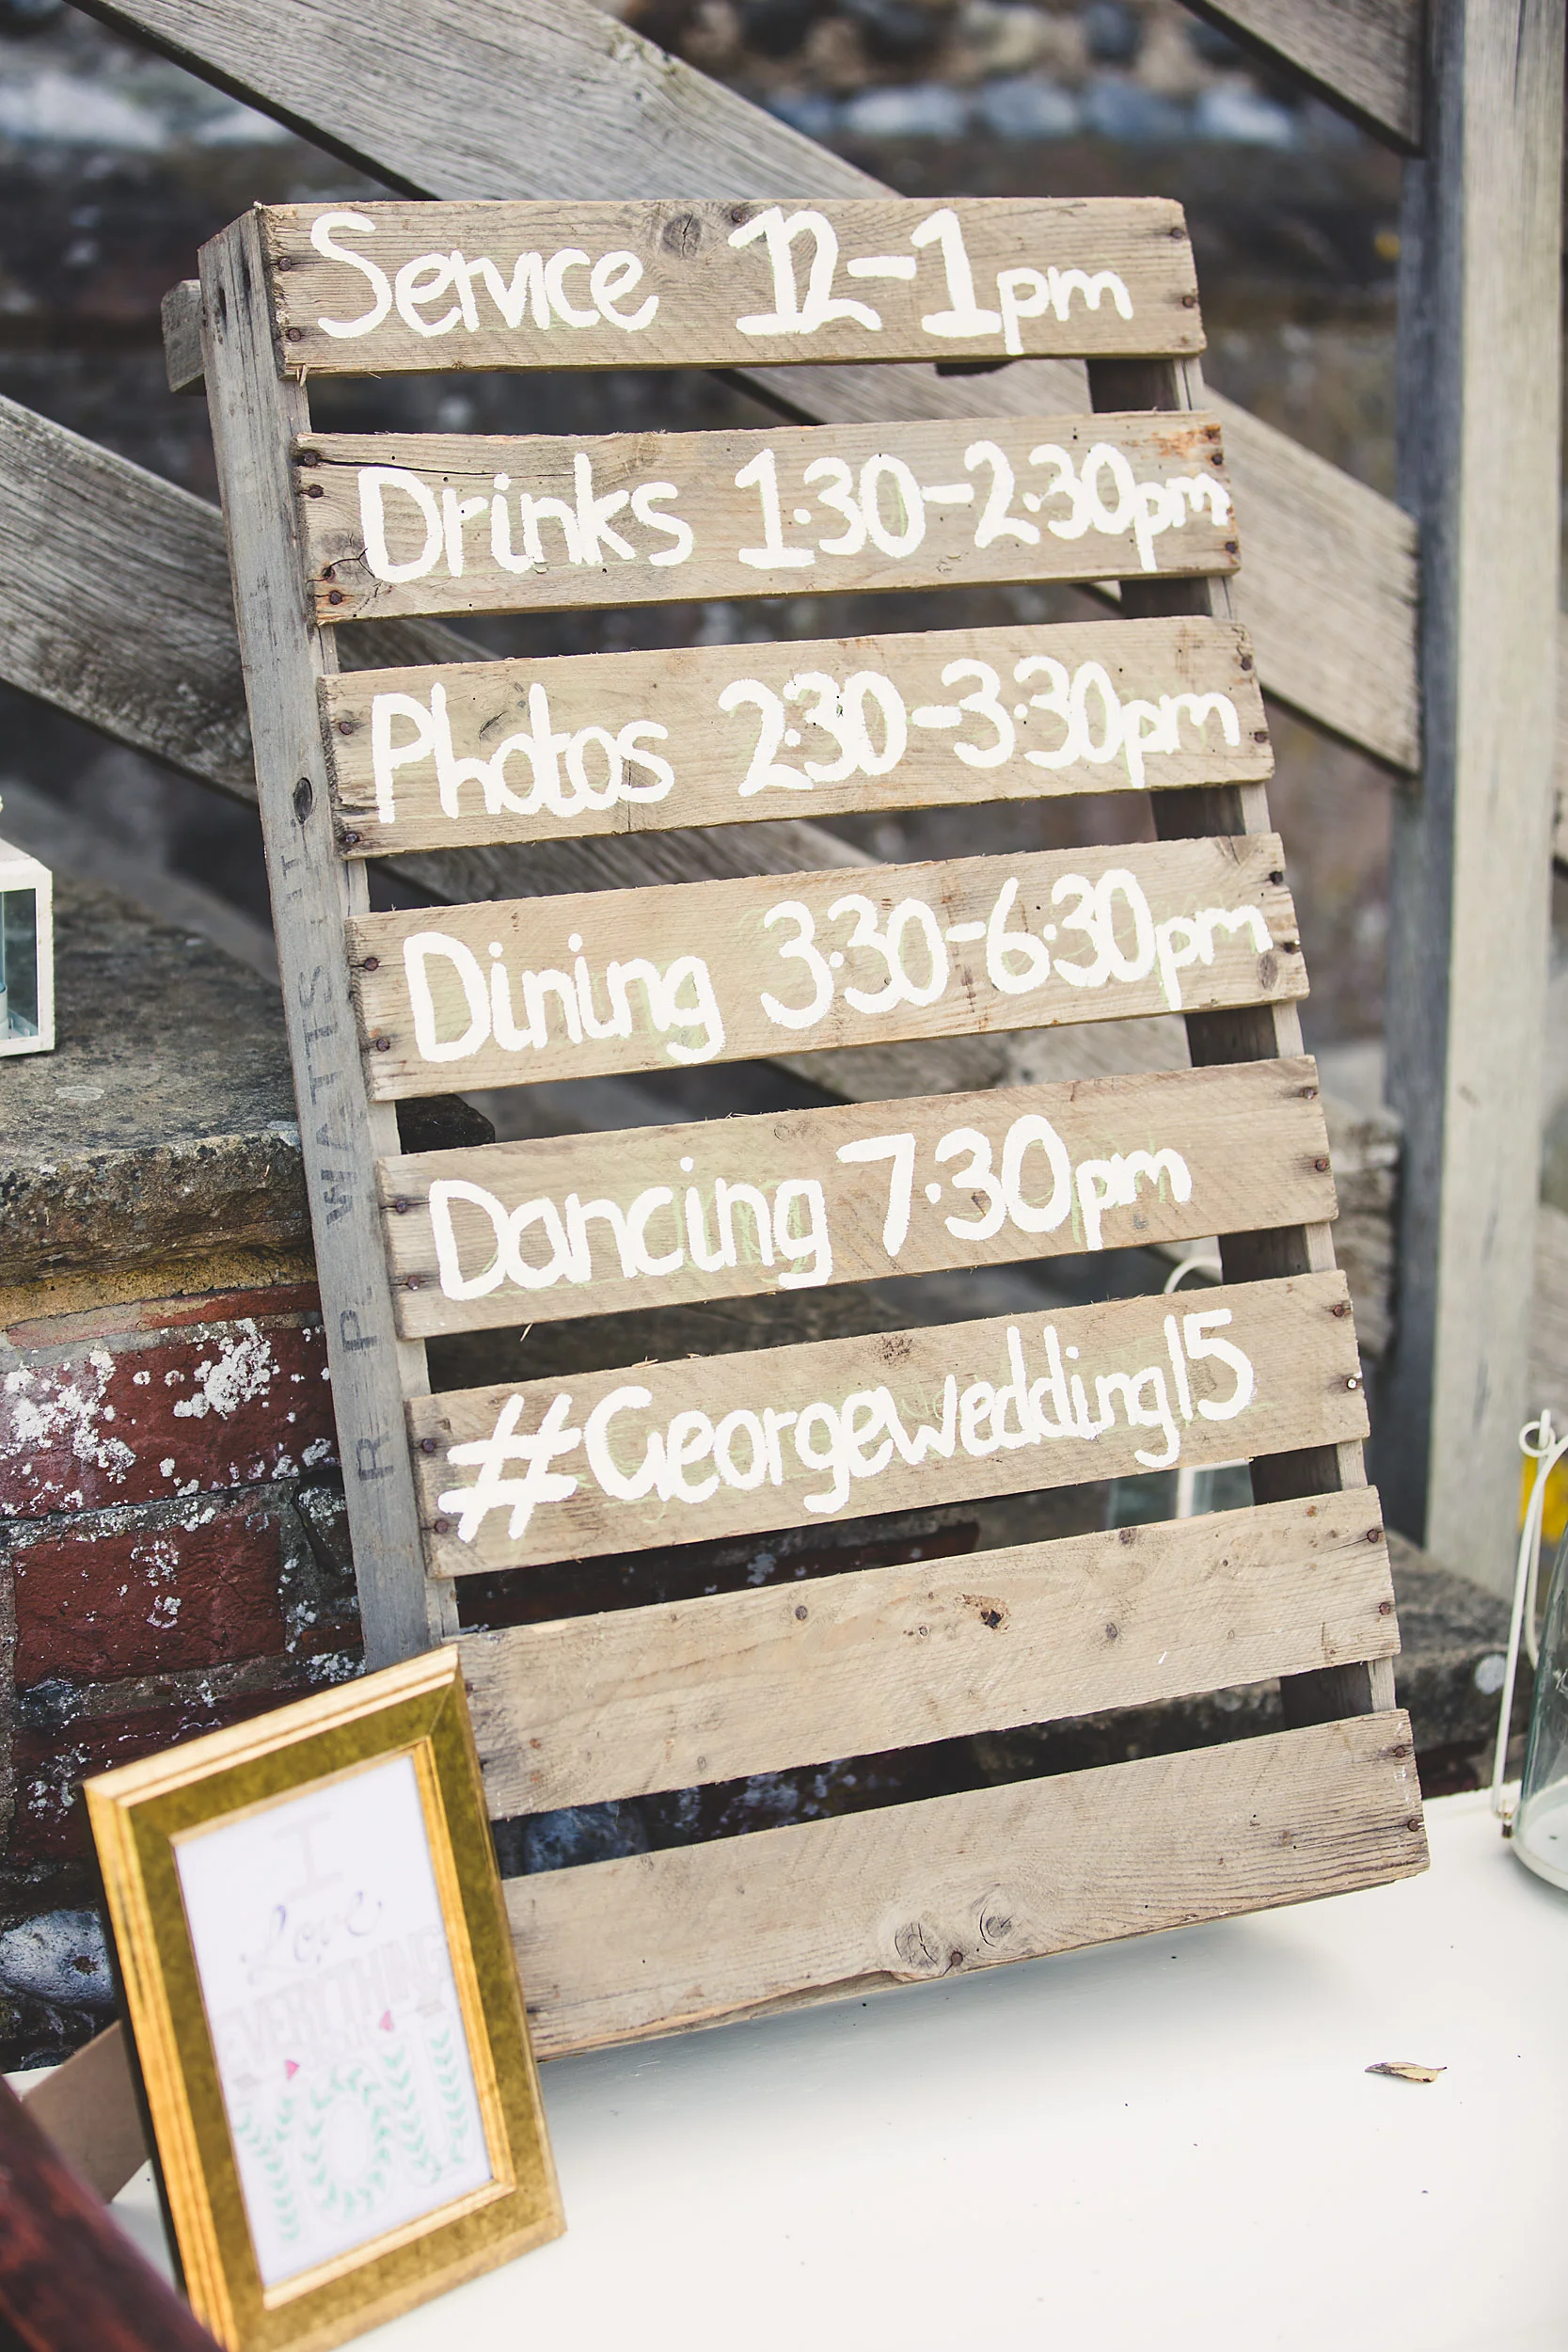 Service 12-1pm
Drinks 1·30-2·30pm
Photos 2·30-3·30pm
Dining 3·30-6·30pm
Dancing 7·30pm
#Georgewedding15
R P WATTS LT
I
love
EVERYTHING